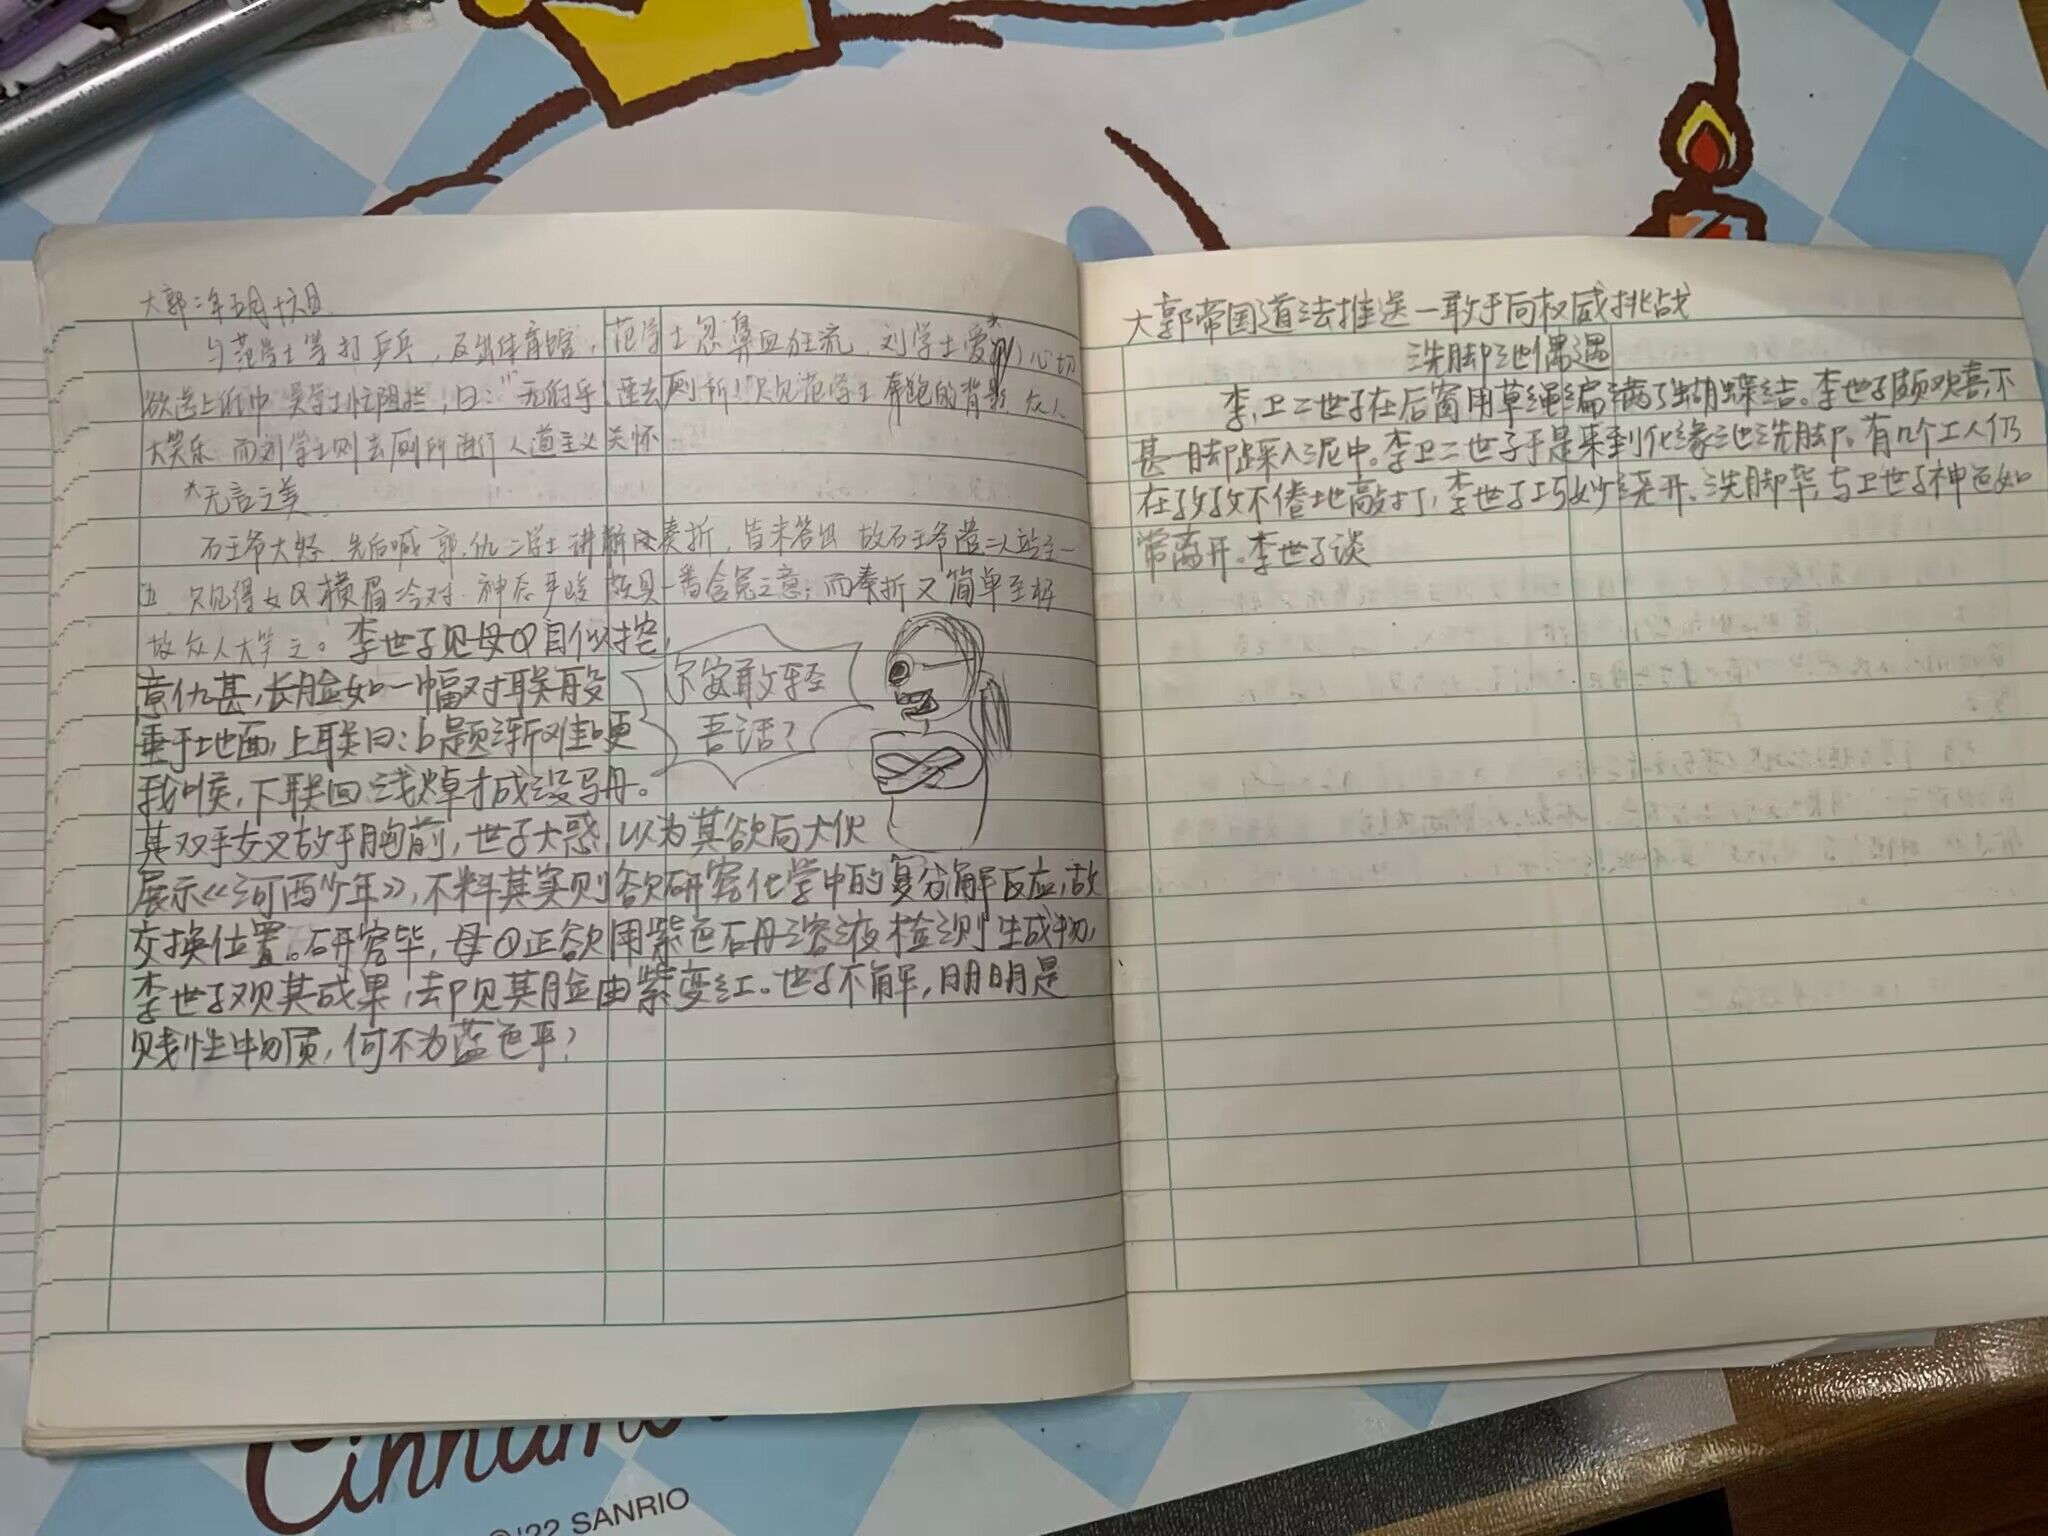 大郭二年五月十六日
与范学士等打乒乓，及出体育馆，范学士忽鼻血狂流，刘学士爱心切
欲送上纸巾，吴学士忙阻拦，曰："无用乎！速去厕所！"只见范学士奔跑的背影，众人
大笑乐，而刘学士则去厕所进行人道主义关怀
*无言之美
石王爷大怪，先后喊郭、仇二学士讲解奏折，皆未答出，故石王爷遣二人站至一
横眉冷对，神态严峻，故具一番含冤之意；而奏折又简单至极
故众人大笑之。李世子见母自似挖
意仇甚，长脸如一幅对联般
垂于地面，上联曰：b题渐难哽
我喉，下联曰浅焯才成没马丹。
尔安敢轻
吾话？
其双手交叉放于胸前，世子大惑，以为其欲向大伙
展示《河西少年》，不料其实则欲研究化学中的复分解反应，故
交换位置。研究毕，母正欲用紫色石丹溶液检测生成物，
李世子观其成果，却见其脸由紫变红。世子不解，明明是
贱性物质，何不为蓝色乎？
大郭帝国道法推送一敢于向权威挑战
洗脚池偶遇
李，卫二世子在后窗用草绳编满了蝴蝶结。李世子颇欢喜，不
甚一脚踩入泥中。李卫二世子于是来到化缘池洗脚。有几个工人仍
在孜孜不倦地敲打，李世子巧妙绕开。洗脚毕，与卫世子神色如
常离开。李世子谈
Cinnamo
©'22 SANRIO